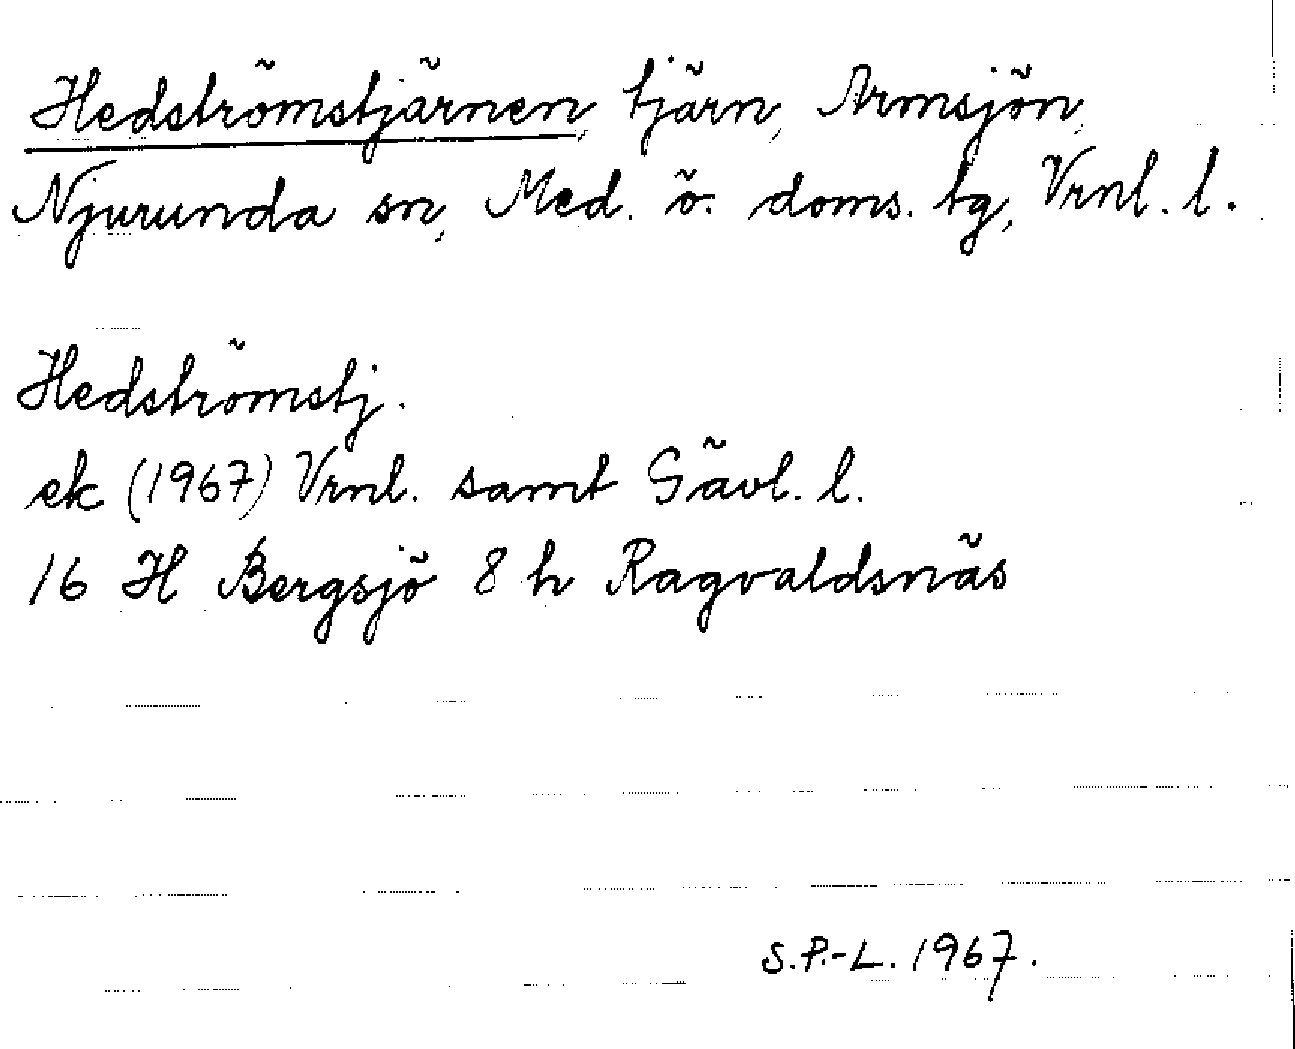 Hedströmstjärnen, tjärn, Armsjön,
Njurunda sn, Med. ö. doms. tg, Vrnl. l.
Hedströmstj.
ek (1967) Vrnl. samt Gävl. l.
16 H Bergsjö 8 h Ragvaldsnäs
S.P.-L. 1967.